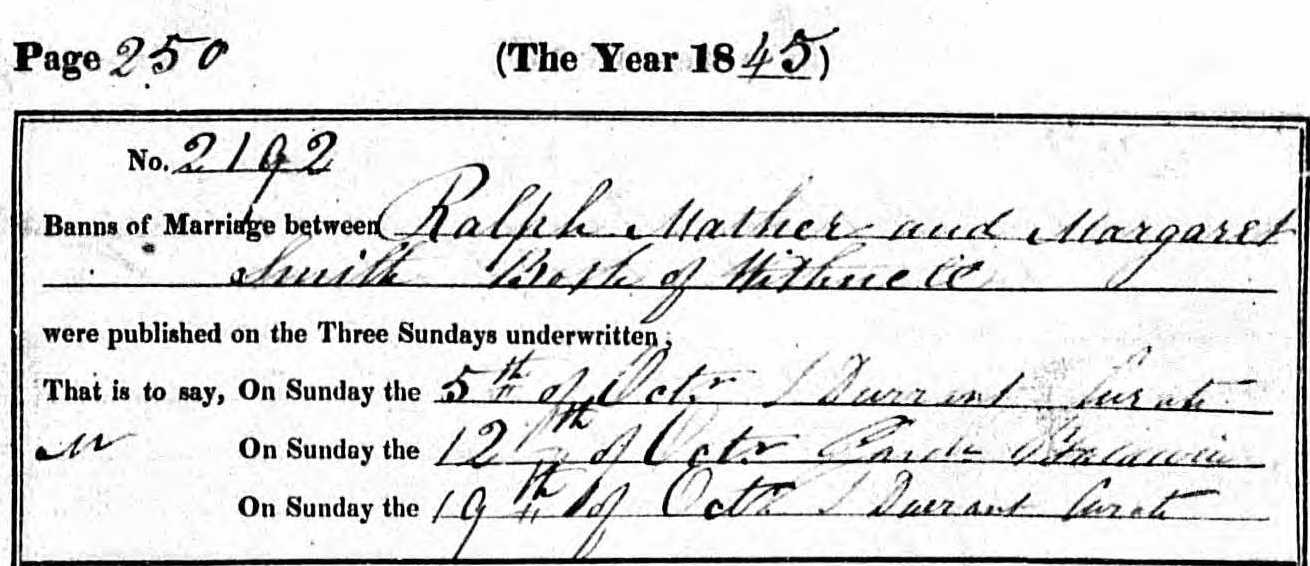 Page 250 (The Year 1845)
No. 2192
Banns of Marriage between Ralph Mather and Margaret
Smith Both of Withnell
were published on the Three Sundays underwritten;
That is to say, On Sunday the 5th of Octr Durrant Curate
On Sunday the 12th of Octr Baldwin
On Sunday the 19th of Octr Durrant Curate